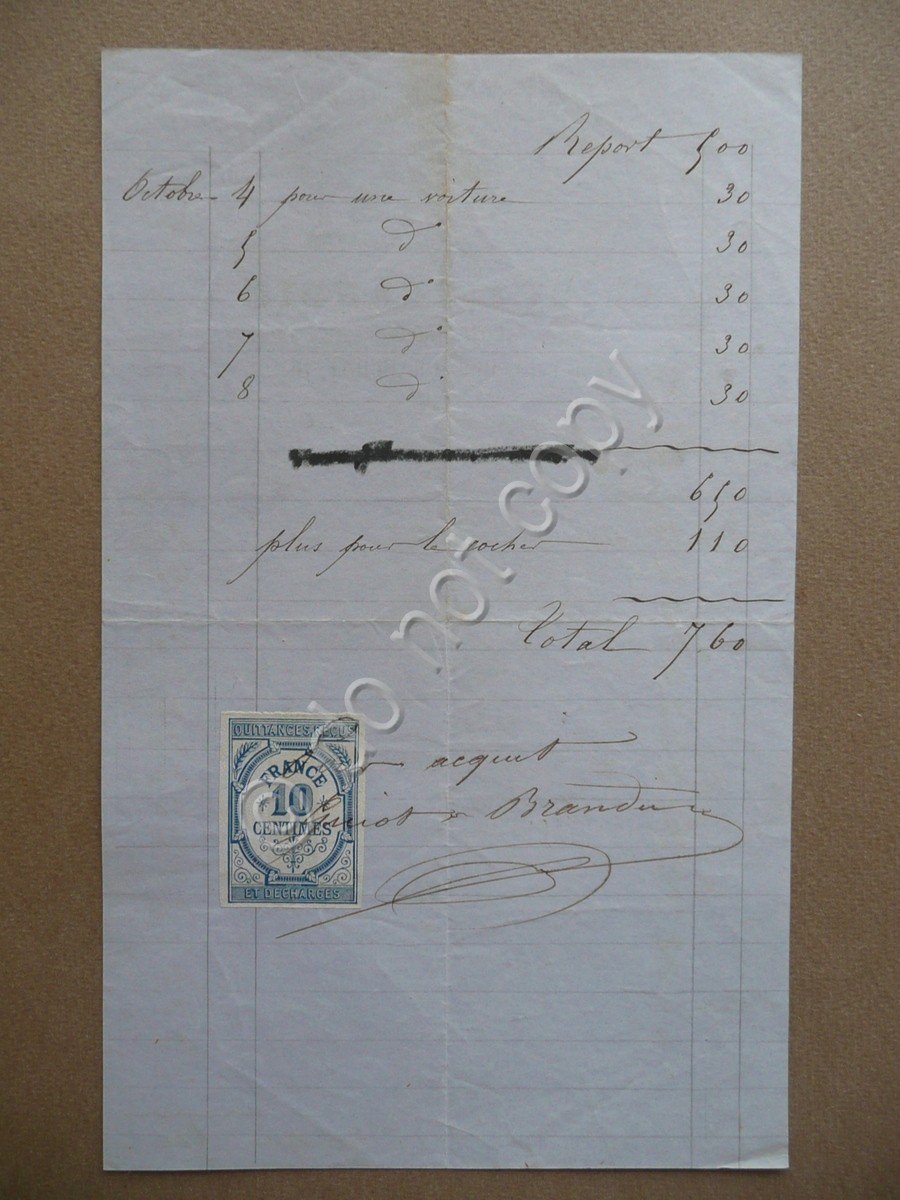 Report 500
Octobre 4 pour une voiture 30
5 d° 30
6 d° 30
7 d° 30
8 d° 30
650
plus pour le cocher 110
Total 760
QUITTANCES, REÇUS
FRANCE
10
CENTIMES
ET DÉCHARGES
acquit
Brandin
Do not copy